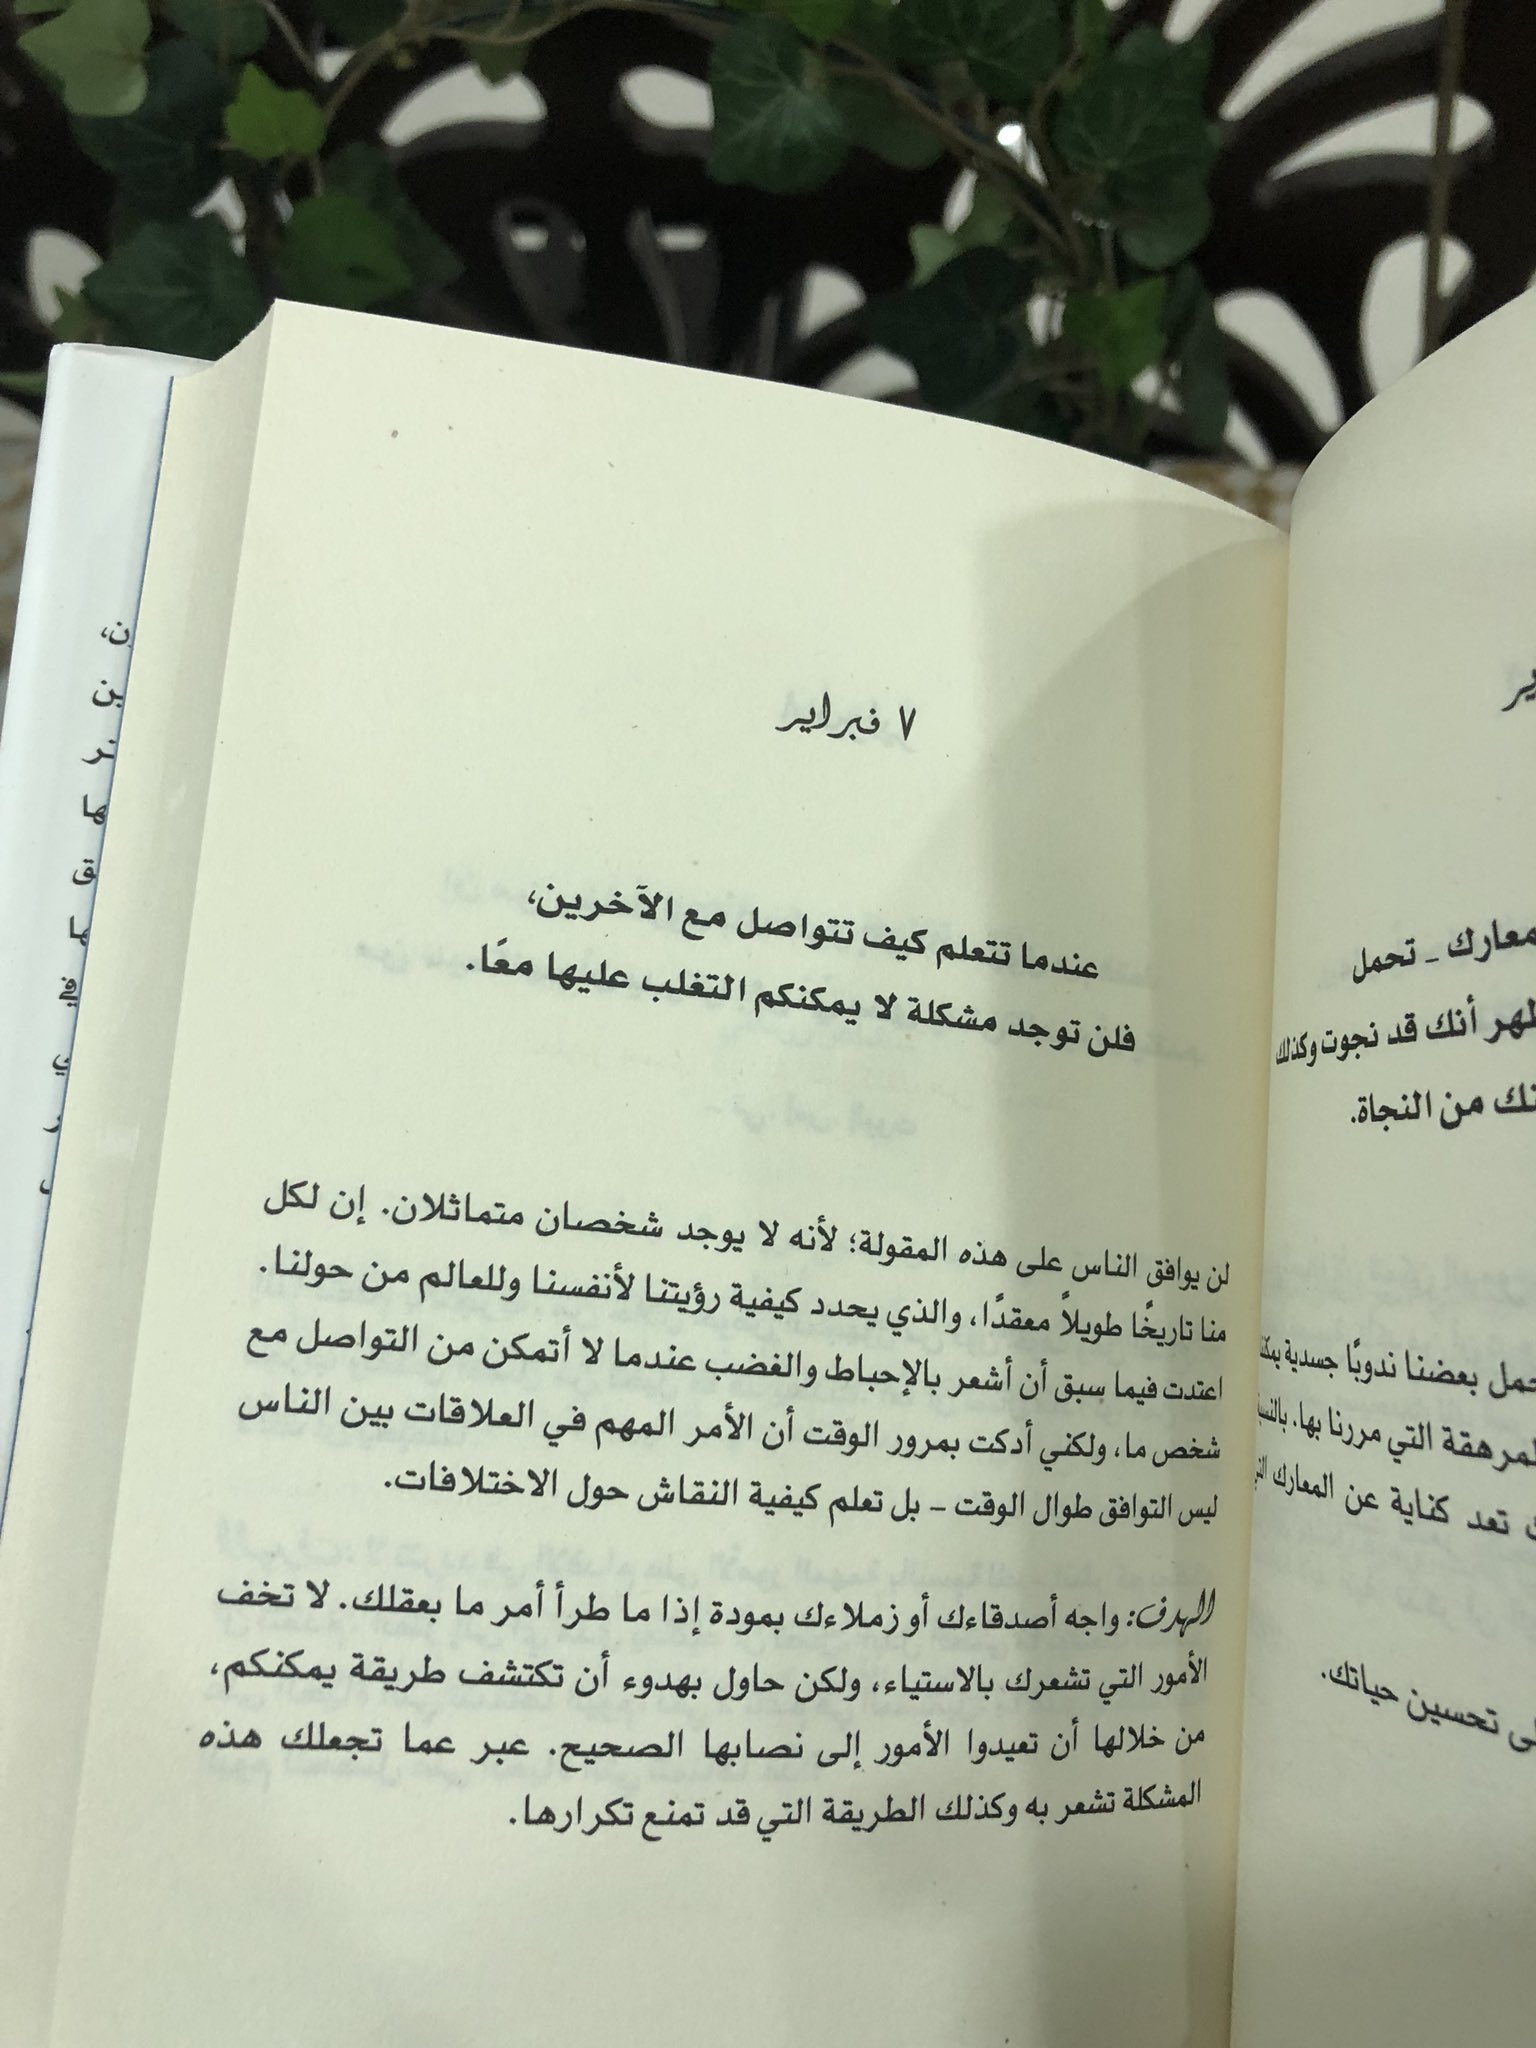 ٧ فبراير
عندما تتعلم كيف تتواصل مع الآخرين،
فلن توجد مشكلة لا يمكنكم التغلب عليها معًا.
لن يوافق الناس على هذه المقولة؛ لأنه لا يوجد شخصان متماثلان. إن لكل
منا تاريخًا طويلاً معقدًا، والذي يحدد كيفية رؤيتنا لأنفسنا وللعالم من حولنا.
اعتدت فيما سبق أن أشعر بالإحباط والغضب عندما لا أتمكن من التواصل مع
شخص ما، ولكني أدكت بمرور الوقت أن الأمر المهم في العلاقات بين الناس
ليس التوافق طوال الوقت - بل تعلم كيفية النقاش حول الاختلافات.
الهدف: واجه أصدقاءك أو زملاءك بمودة إذا ما طرأ أمر ما بعقلك. لا تخف
الأمور التي تشعرك بالاستياء، ولكن حاول بهدوء أن تكتشف طريقة يمكنكم،
من خلالها أن تعيدوا الأمور إلى نصابها الصحيح. عبر عما تجعلك هذه
المشكلة تشعر به وكذلك الطريقة التي قد تمنع تكرارها.
معارك - تحمل
أنك قد نجوت وكذلك
من النجاة.
بعضنا ندوبًا جسدية
التي مررنا بها.
تعد كناية عن المعارك
تحسين حياتك.